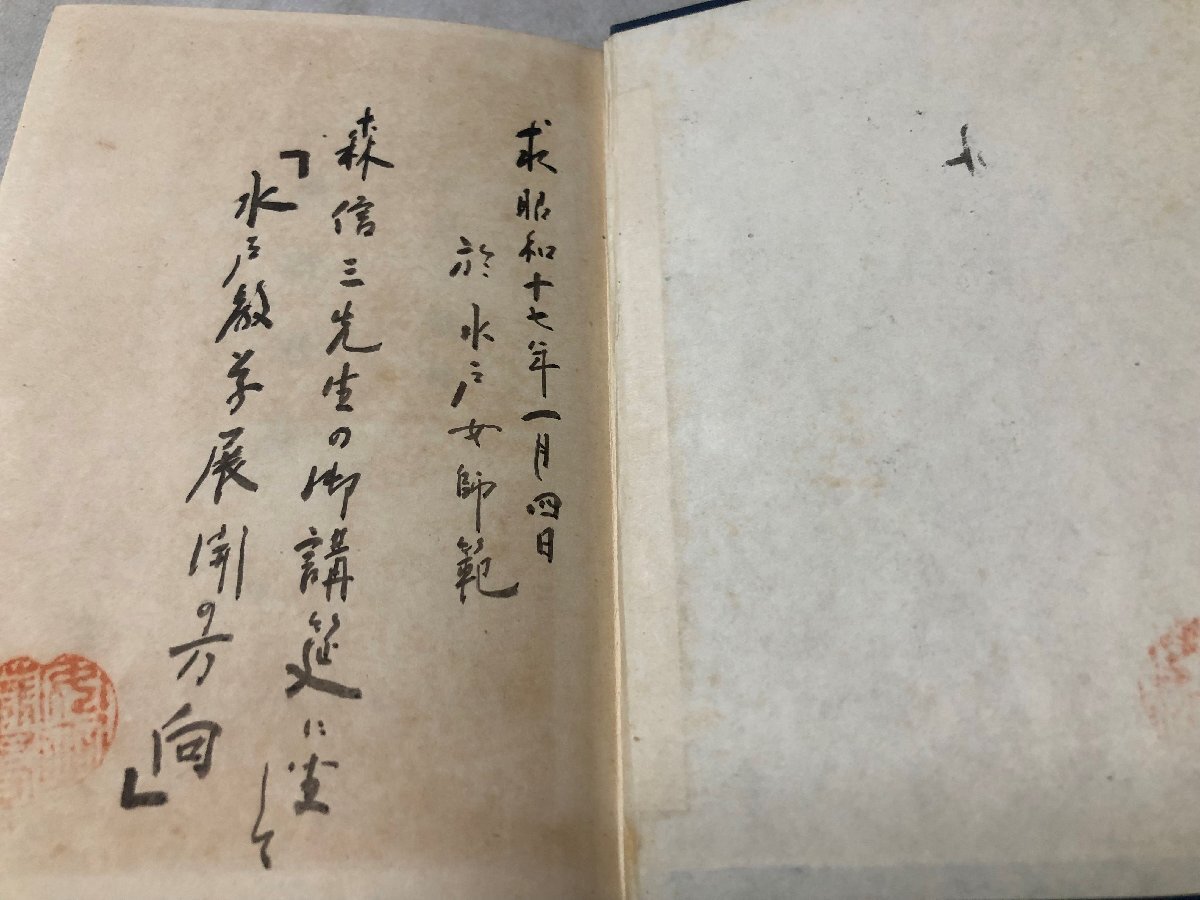 求昭和十七年一月四日
於水戸女師範
森信三先生の御講筵に坐して
「水戸教学展開の方向」